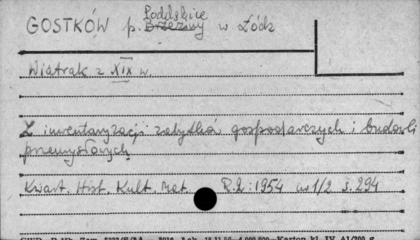 Poddębice
GOSTKÓW p. Brzeziny w Łódź
Wiatrak z XIX w.
Z inwentaryzacji zabytków gospodarczych i budowli
przemysłowych
Kwart. Hist. Kult. Mat. R.2: 1954 nr 1/2 s. 294